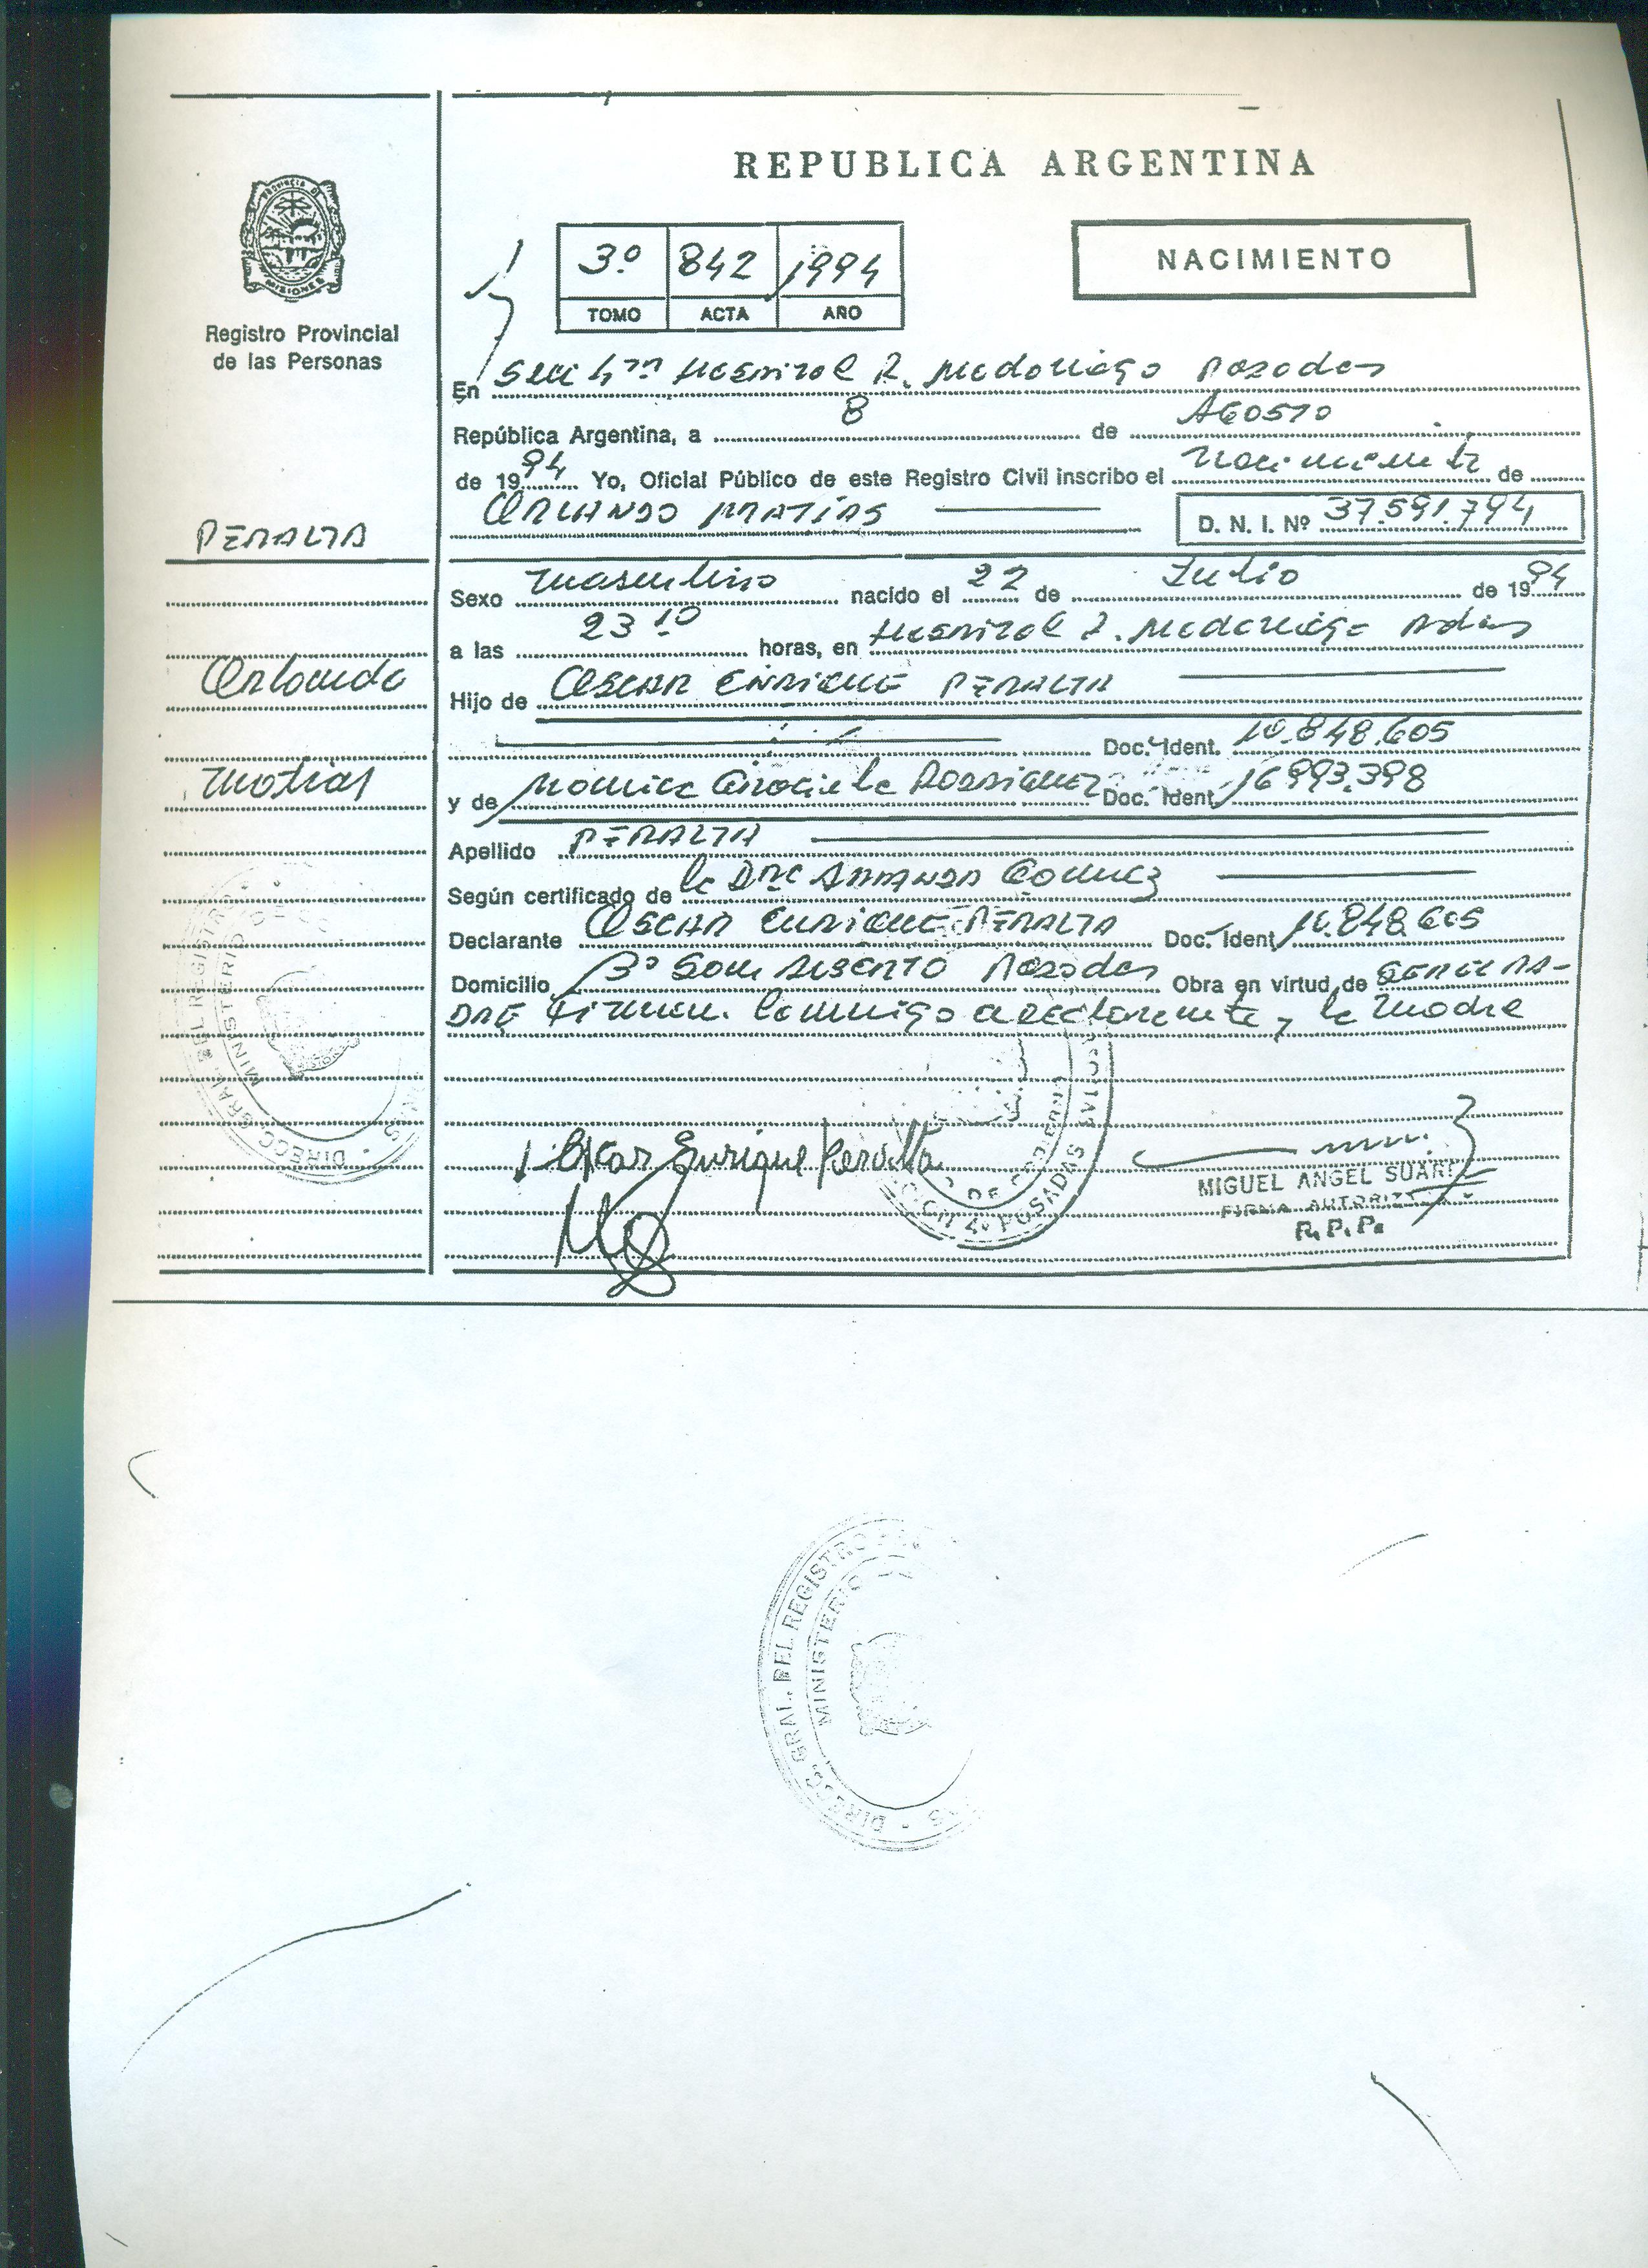 PROVINCIA DE
MISIONES
Registro Provincial
de las Personas
PERALTA
Orlando
Matias
REPUBLICA ARGENTINA
3º 842 1994
TOMO ACTA AÑO
NACIMIENTO
En Secc 4ta Hospital R. Madariaga Posadas
República Argentina, a 8 de AGOSTO
de 1994 Yo, Oficial Público de este Registro Civil inscribo el Nacimiento de
ORLANDO MATIAS D. N. I. Nº 37.591.794
Sexo Masculino nacido el 22 de Julio de 1994
a las 23 10 horas, en Hospital R. Madariaga Pdas
Hijo de OSCAR ENRIQUE PERALTA
Doc. Ident. 10.848.605
y de Monica Graciela Rodriguez Doc. Ident. 16.993.398
Apellido PERALTA
Según certificado de la Dra Gomez
Declarante OSCAR ENRIQUE PERALTA Doc. Ident. 10.848.605
Domicilio Bº Posadas Obra en virtud de SER EL PA-
DRE Firman conmigo declarante y la madre
Oscar Enrique Peralta
MIGUEL ANGEL SUAREZ
FIRMA AUTORIZADA
R.P.P.
DIRECC. GRAL. DEL REGISTRO
MINISTERIO DE GO
DE GOBIERNO
4º POSADAS
DIRECC. GRAL. DEL REGISTRO
MINISTERIO